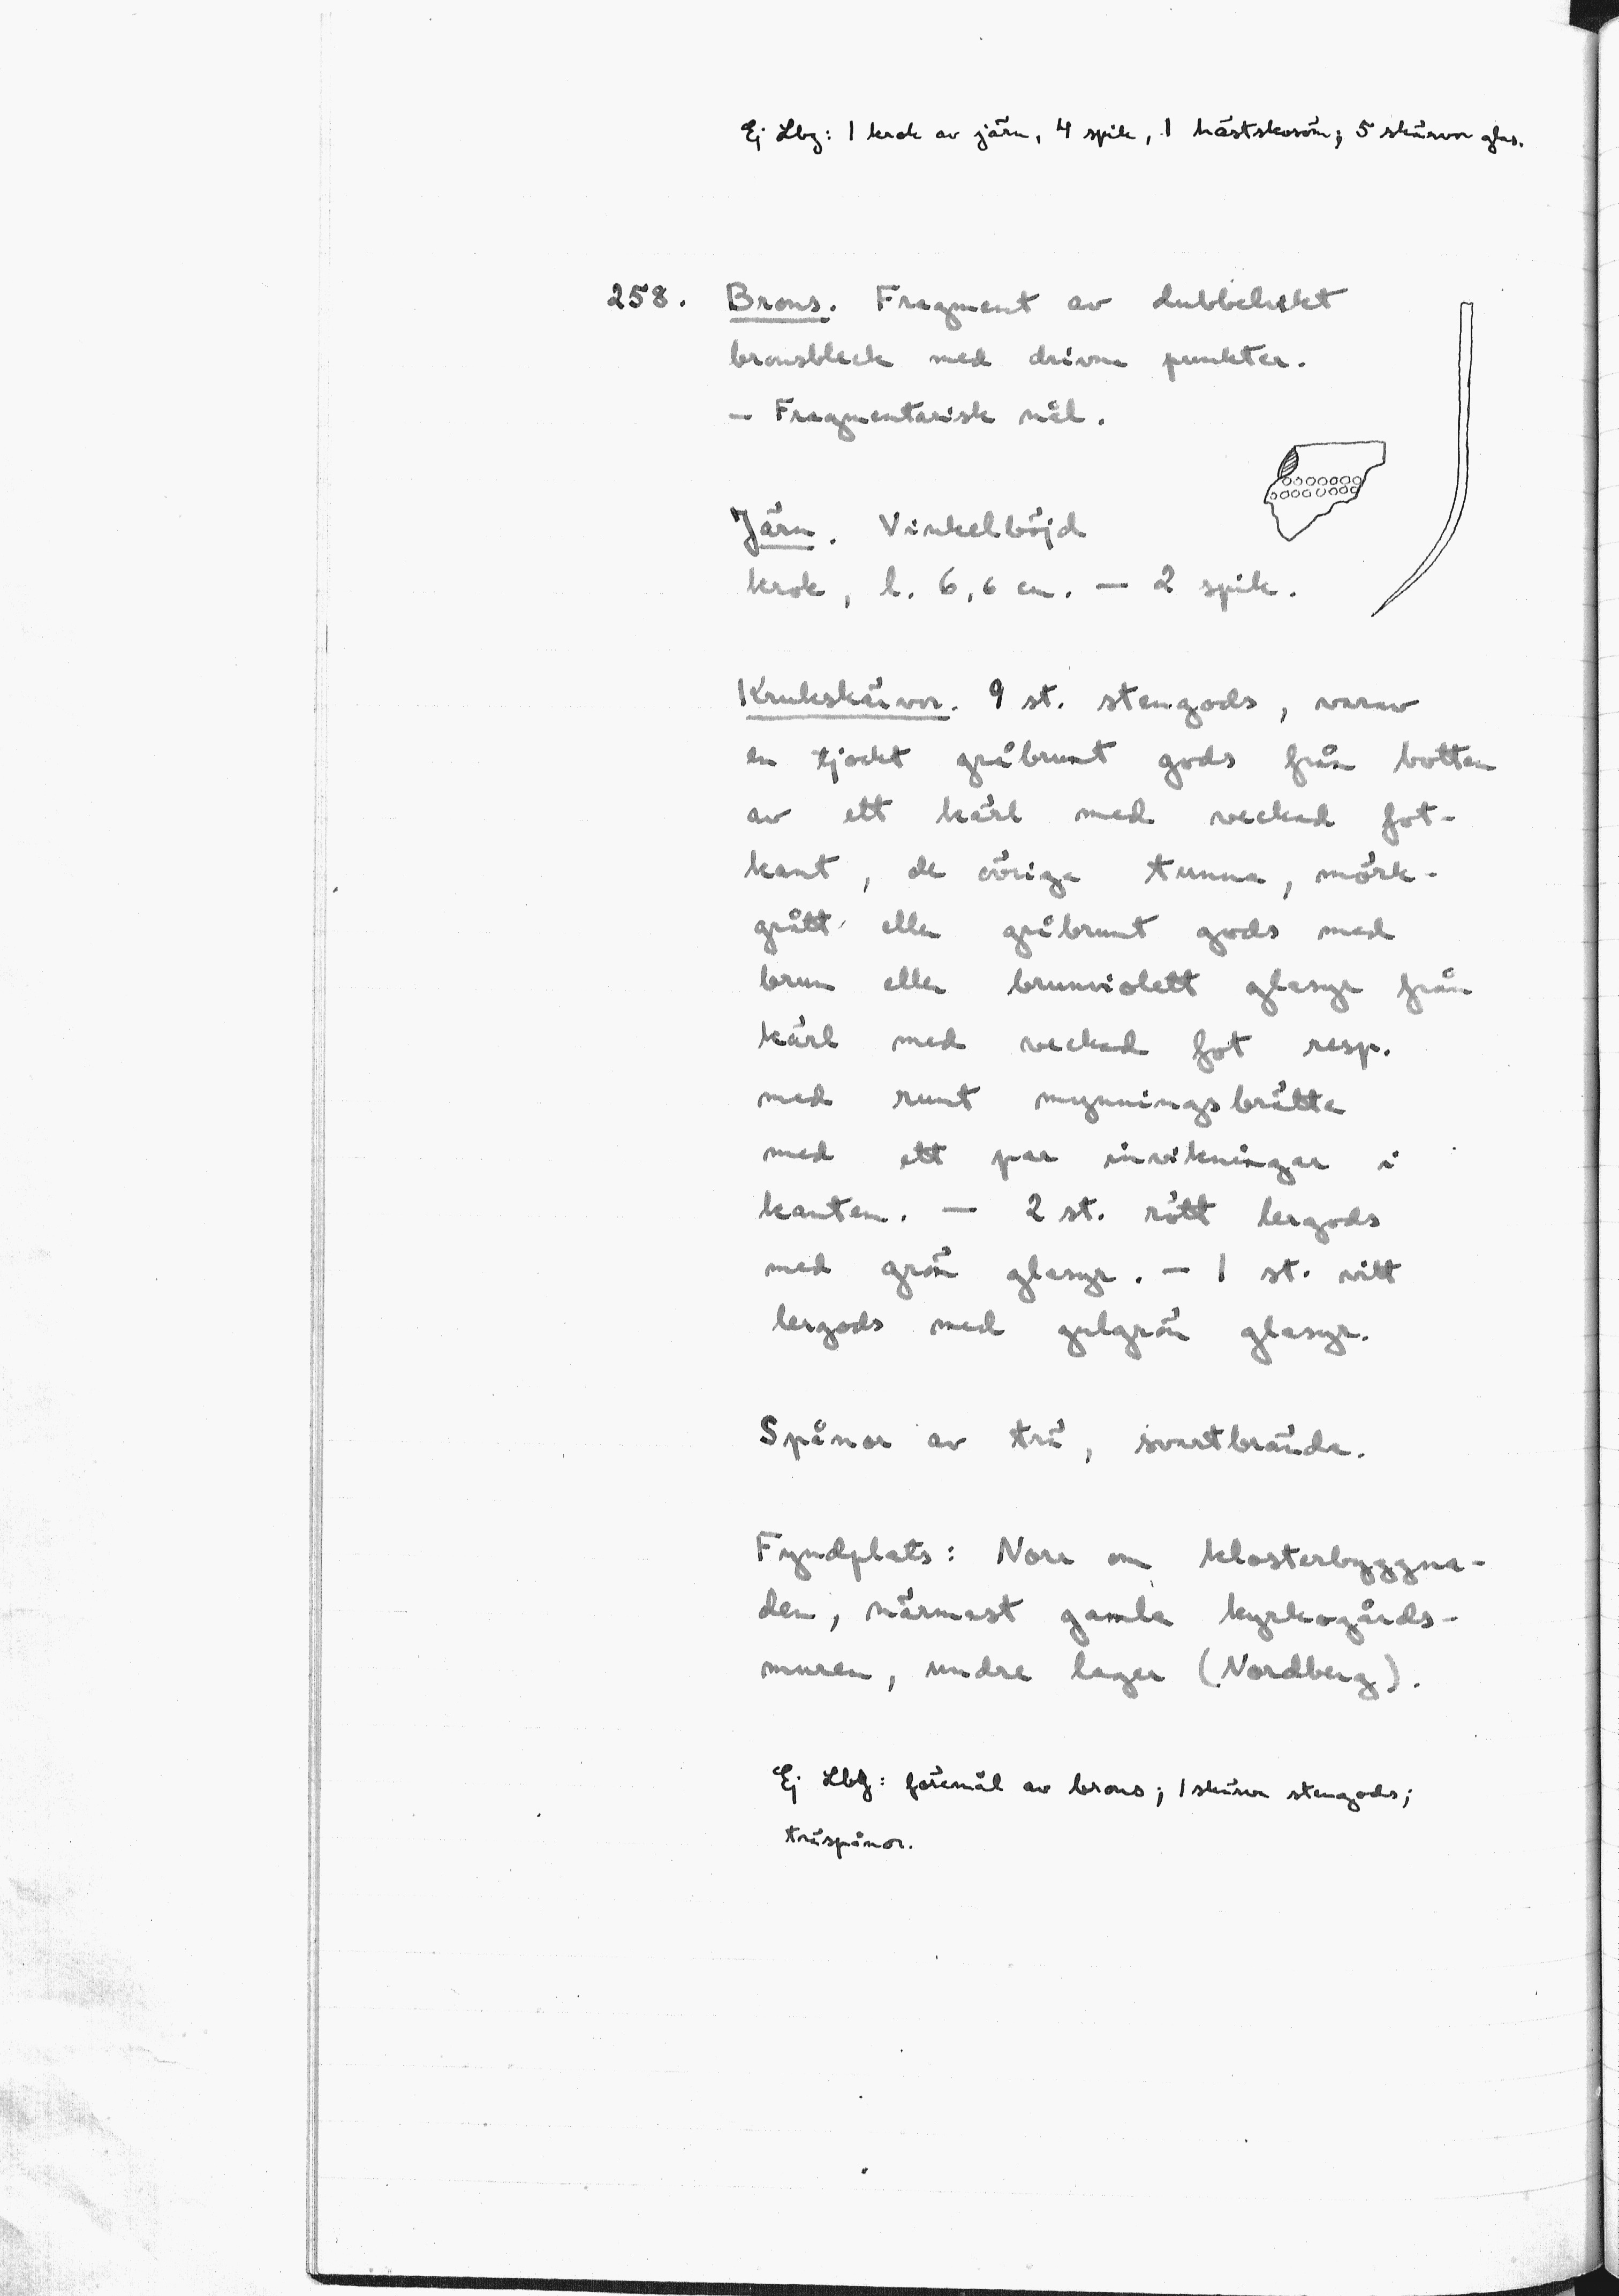 Ej Lbg: 1 krok av järn, 4 spik, 1 hästskosöm; 5 skärvor glas.
258. Brons. Fragment av dubbelvikt
bronsbleck med drivna punkter.
– Fragmentarisk nål.
Järn. Vinkelböjd
krok, l. 6,6 cm. – 2 spik.
Krukskärvor. 9 st. stengods, varav
en tjockt gråbrunt gods från botten
av ett kärl med veckad fot-
kant, de övriga tunna, mörk-
grått eller gråbrunt gods med
brun eller brunviolett glasyr från
kärl med veckad fot resp.
med runt mynningsbrätte
med ett par invikningar i
kanten. – 2 st. rött lergods
med grön glasyr. – 1 st. vitt
lergods med gulgrön glasyr.
Spånor av trä, svartbrända.
Fyndplats: Norr om klosterbyggna-
den, närmast gamla kyrkogårds-
muren, undre lager (Nordberg).
Ej Lbg: föremål av brons; 1 skärva stengods;
träspånor.